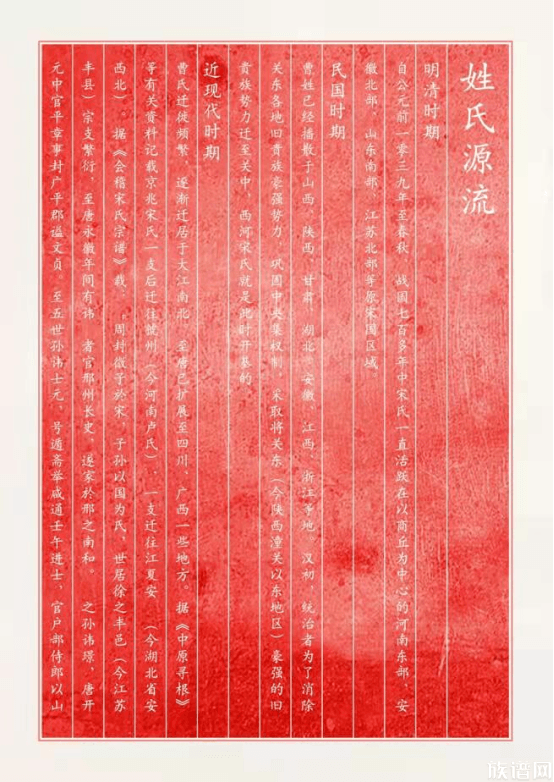 姓氏源流
明清时期
自公元前一零三九年至春秋、战国七百多年中宋氏一直活跃在以商丘为中心的河南东部、安
徽北部、山东南部、江苏北部等原宋国区域
民国时期
曹姓已经播散于山西、陕西、甘肃、湖北、安徽、江西、浙江等地 汉初，统治者为了消除
关东各地旧贵族豪强势力，巩固中央集权制，采取将关东（今陕西潼关以东地区）豪强的旧
贵族势力迁至关中，西河宋氏就是此时开基的
近现代时期
曹氏迁徙频繁，逐渐迁居于大江南北，至唐已扩展至四川、广西一些地方。据《中原寻根》
等有关资料记载京兆宋氏一支后迁往虢州（今河南卢氏），一支迁往江夏安（今湖北省安
西北） 据《会稽宋氏宗谱》载， 周封微子於宋，子孙以国为氏，世居徐之丰邑（今江苏
丰县）宗支繁衍，至唐永徽年间有讳 者官邢州长史，遂家於邢之南和。 之孙讳璟，唐开
元中官平章事封广平郡谥文贞，至五世孙讳士元，号遁斋举咸通壬午进士，官户部侍郎以山
族谱网